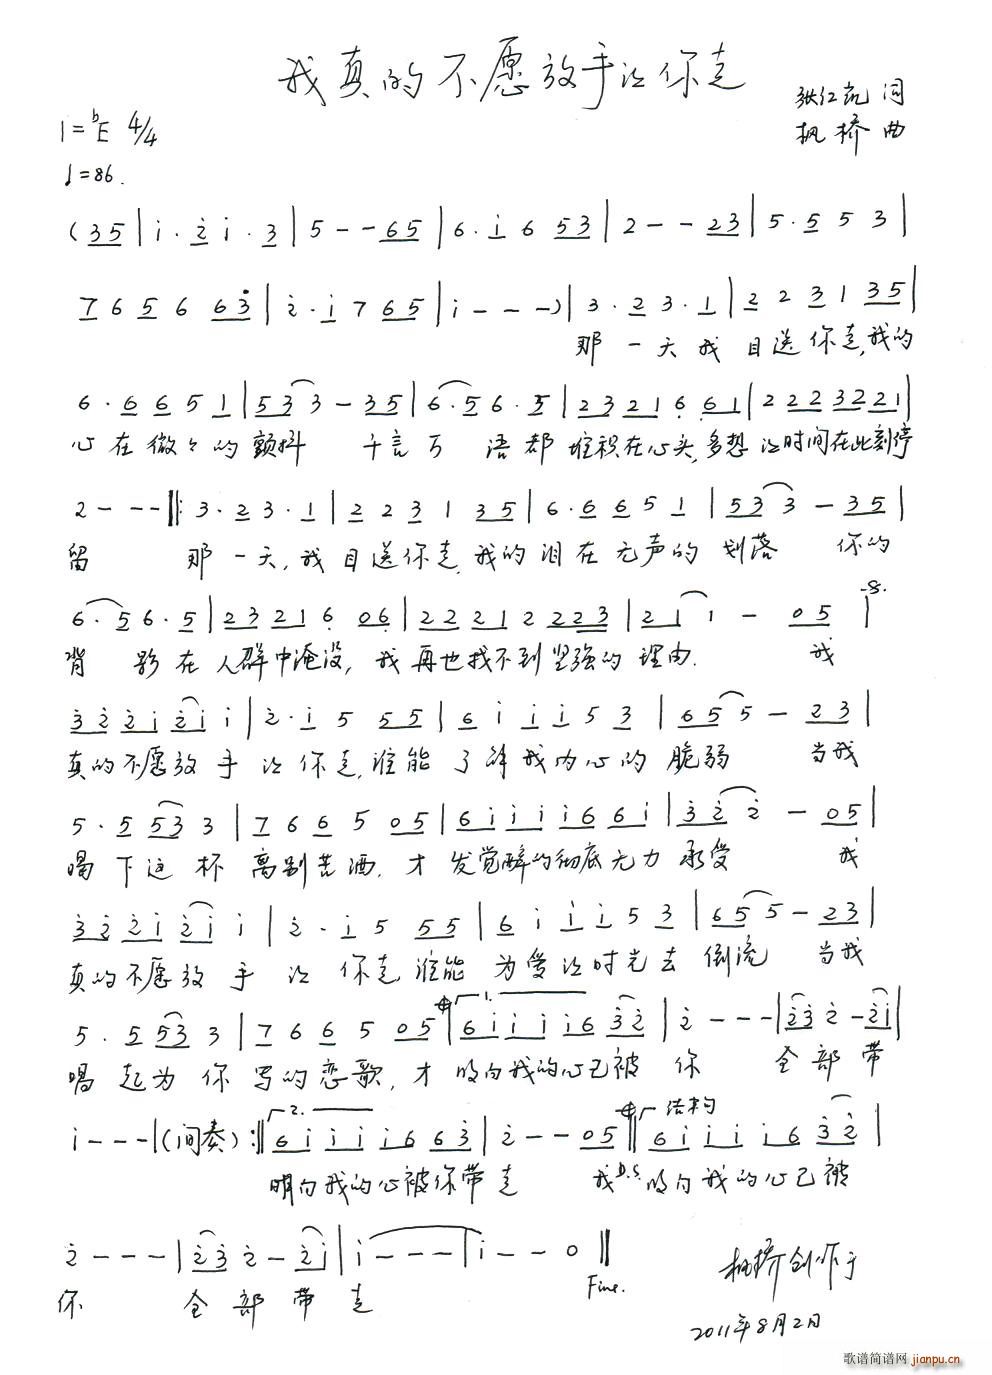 我真的不愿放手让你走
张红凯 词
枫桥 曲
1=ᵇE 4/4
♩=86.
(35|i·2̇ i·3|5--65|6·i 6 53|2--23|5·5 5 3|
7 6 5 6 63̇|2̇·i 7 65|i---)|3·23·1|2 2 3 1 35|
那一天我目送你走,我的
6·6 6 5 1|53 3-35|6·5 6·5|23 21 6 61|222 3221|
心在微々的颤抖 千言万语都堆积在心头,多想让时间在此刻停
2---‖:3·23·1|2 2 3 1 35|6·6 6 5 1|53 3-35|
留 那一天,我目送你走,我的泪在无声的划落 你的
6·5 6·5|23 21 6 06|2221 2 223|21 1-05|
背影在人群中淹没,我再也找不到坚强的理由. 我
3̇2̇2̇i 2̇i i|2̇·i 5 55|6 i i i 5 3|65 5-23|
真的不愿放手让你走,谁能了解我内心的脆弱 当我
5·5 53 3|7 6 6 5 05|6i i i i66i|3̇2̇ 2̇-05|
喝下这杯离别苦酒,才发觉醉的彻底无力承受 我
3̇2̇2̇i 2̇i i|2̇·i 5 55|6 i i i 5 3|65 5-23|
真的不愿放手让你走谁能为爱让时光去倒流 当我
5·5 53 3|7 6 6 5 05‖1. 6i i i i6 3̇2̇|2̇---|2̇3̇ 2̇-2̇i|
唱起为你写的恋歌,才明白我的心已被你 全部带
i---|(间奏):‖2. 6i i i i6 6 3̇|2̇--05‖结构 6i i i i6 3̇2̇|
明白我的心被你带走 我 D.S. 明白我的心已被
2̇---|2̇3̇ 2̇-2̇i|i---|i--0‖
Fine.
你 全部带走
枫桥创作于
2011年8月2日
歌谱简谱网 jianpu.cn